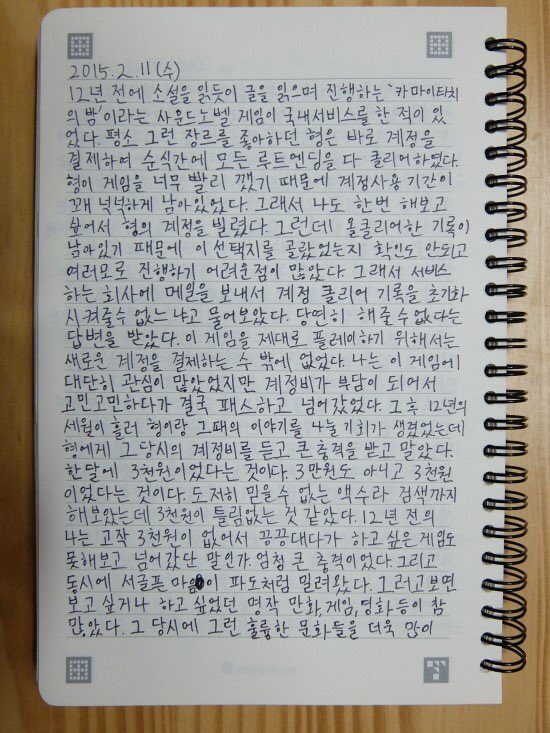 2015.2.11(수)
12년 전에 소설을 읽듯이 글을 읽으며 진행하는 '카마이타치
의 밤'이라는 사운드노벨 게임이 국내서비스를 한 적이 있
었다. 평소 그런 장르를 좋아하던 형은 바로 계정을
결제하여 순식간에 모든 루트엔딩을 다 클리어하였다.
형이 게임을 너무 빨리 깼기 때문에 계정사용 기간이
꽤 넉넉하게 남아있었다. 그래서 나도 한번 해보고
싶어서 형의 계정을 빌렸다. 그런데 올클리어한 기록이
남아있기 때문에 이 선택지를 골랐었는지 확인도 안되고
여러모로 진행하기 어려운점이 많았다. 그래서 서비스
하는 회사에 메일을 보내서 계정 클리어 기록을 초기화
시켜줄수 없느냐고 물어보았다. 당연히 해줄수없다는
답변을 받았다. 이 게임을 제대로 플레이하기 위해서는
새로운 계정을 결제하는 수 밖에 없었다. 나는 이 게임에
대단히 관심이 많았었지만 계정비가 부담이 되어서
고민고민하다가 결국 패스하고 넘어갔었다. 그 후 12년의
세월이 흘러 형이랑 그때의 이야기를 나눌 기회가 생겼었는데
형에게 그 당시의 계정비를 듣고 큰 충격을 받고 말았다.
한달에 3천원이었다는 것이다. 3만원도 아니고 3천원
이었다는 것이다. 도저히 믿을수 없는 액수라 검색까지
해보았는데 3천원이 틀림없는 것 같았다. 12년 전의
나는 고작 3천원이 없어서 끙끙대다가 하고 싶은 게임도
못해보고 넘어갔단 말인가. 엄청 큰 충격이었다. 그리고
동시에 서글픈 마음이 파도처럼 밀려왔다. 그러고보면
보고 싶거나 하고 싶었던 명작 만화, 게임, 영화 등이 참
많았다. 그 당시에 그런 훌륭한 문화들을 더욱 많이